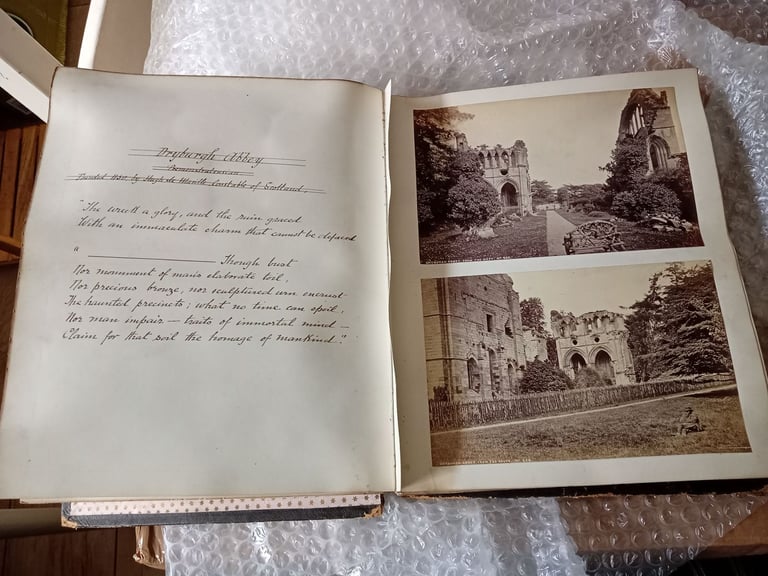 Dryburgh Abbey
Premonstratensian
Founded 1150. by Hugh de Morville Constable of Scotland.
"The wreck a glory, and the ruin graced
With an immaculate charm that cannot be defaced
"
Though bust
Nor monument of man's elaborate toil,
Nor precious bronze, nor sculptured urn encrust
The haunted precincts; what no time can spoil,
Nor man impair — traits of immortal mind —
Claim for that soil the homage of mankind."
ABBEY, FROM THE
DRYBURGH ABBEY, FROM THE